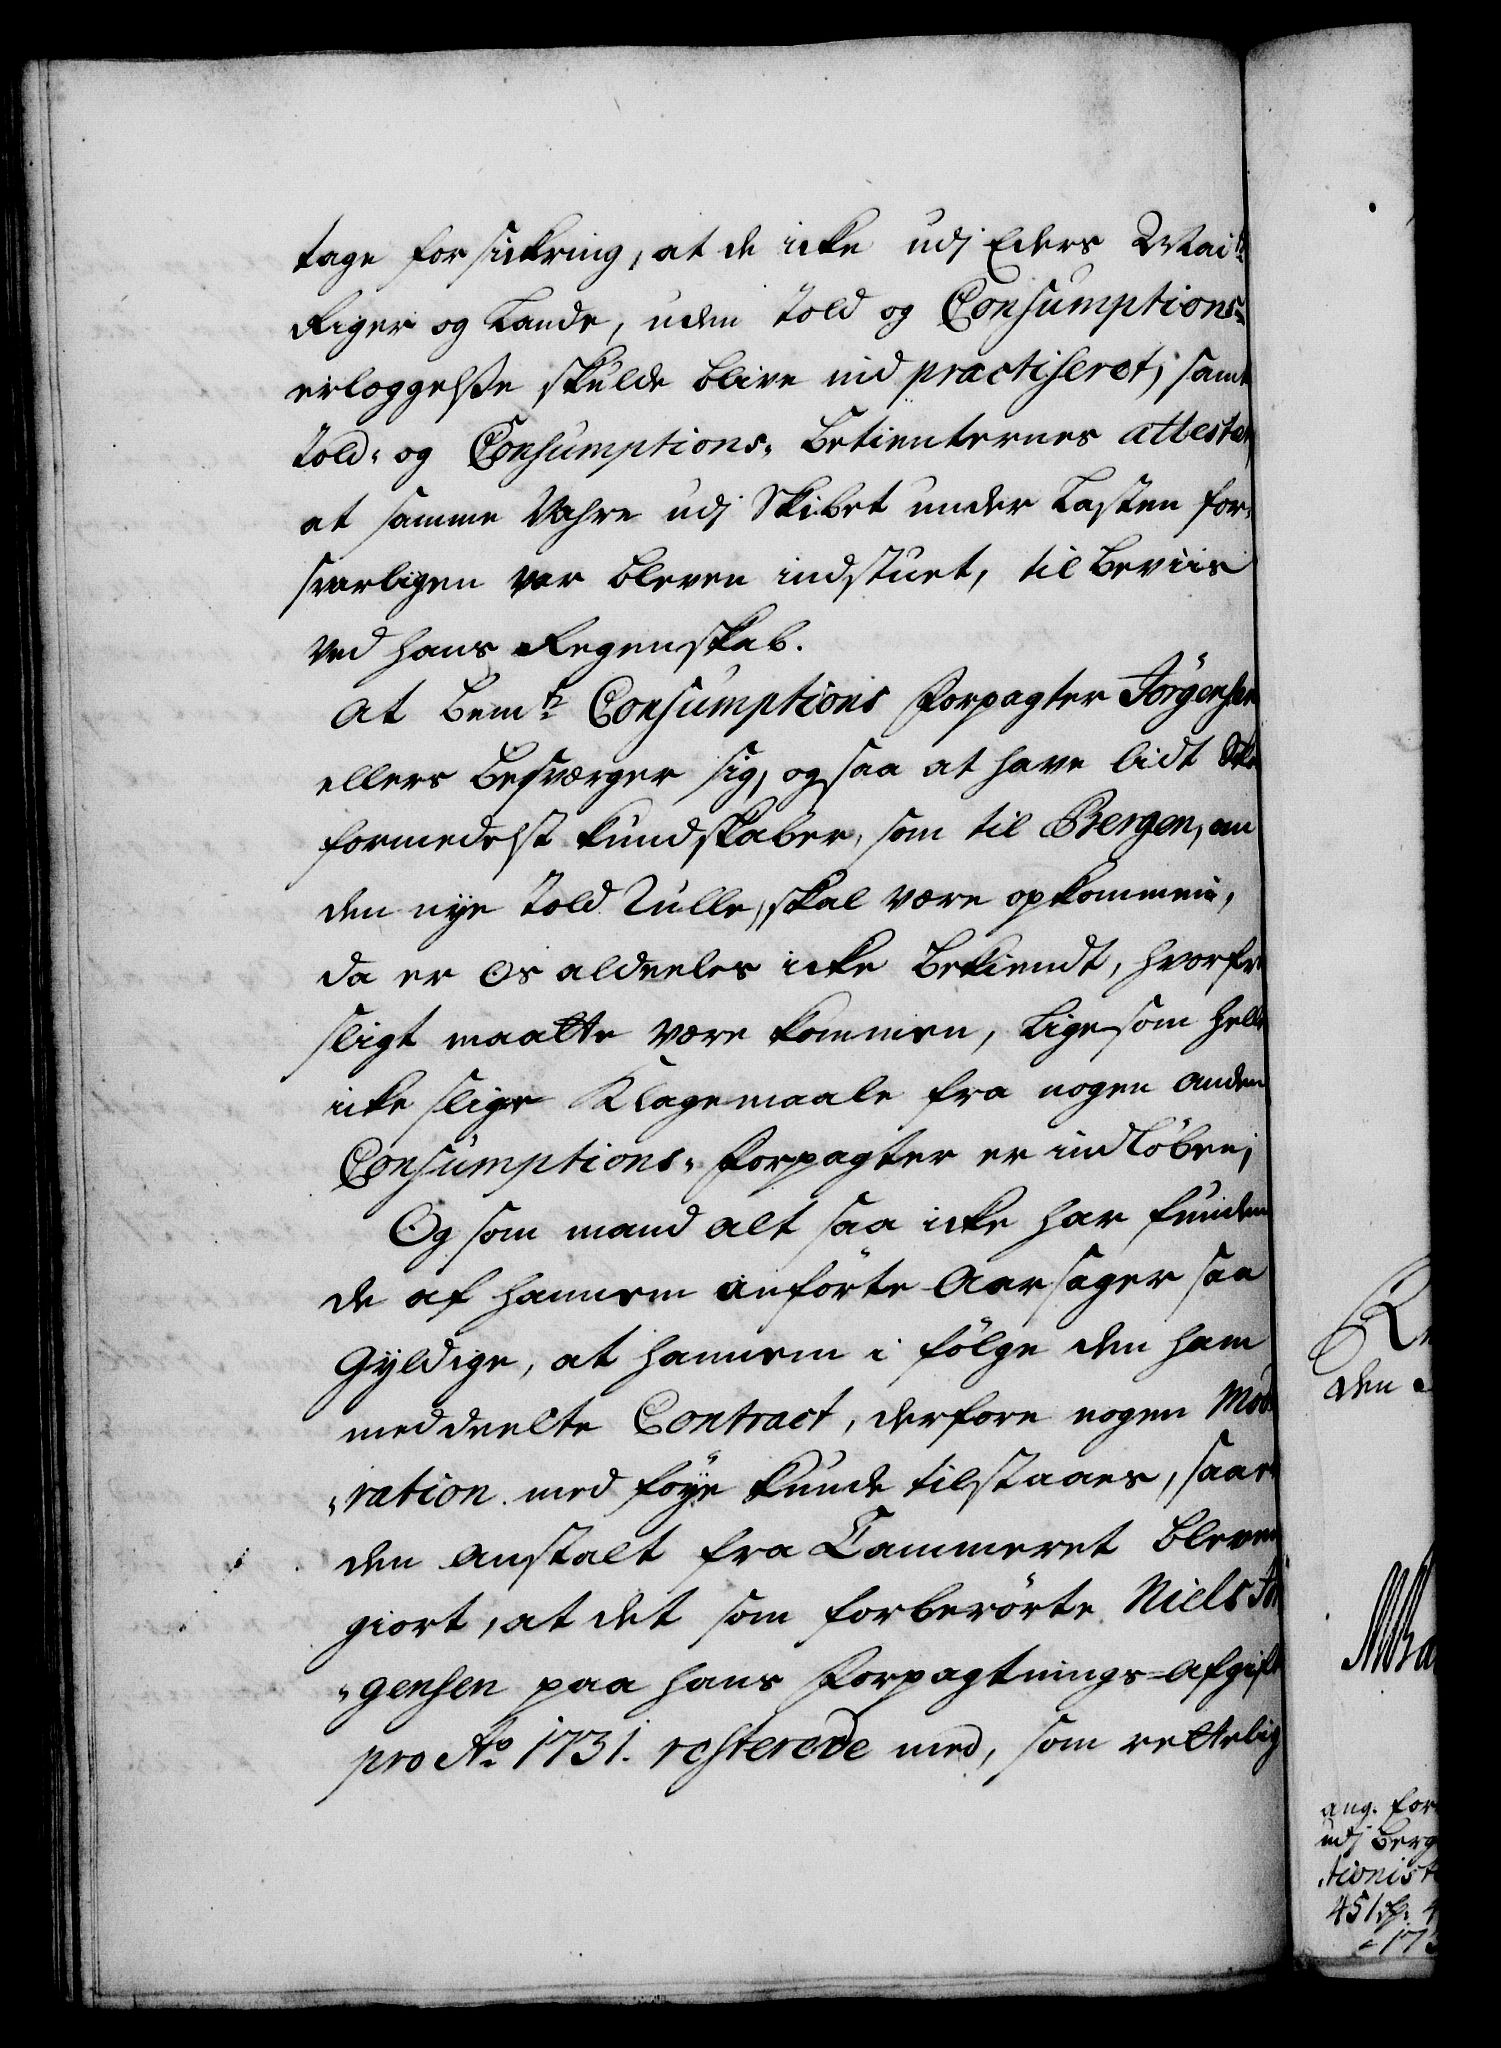 tage forsickring, at de icke udj Eders May:ts
Riger og Lande, uden Told og Consumptions-
erleggelsse skulde blive ind practiseret; samt
Told- og Consumptions- betienternes attester,
at samme Vahre udj Skibet under Lasten for-
svarligen var bleven indstuet, til beviis
ved hans Regenskab.
At bem:te Consumptions Forpagter Jörgensen
ellers besværger sig, ogsaa at have lidt
formedelst kundskaber, som til Bergen, om
den nye Told Rulle, skal være opkommen,
da er Os aldeeles icke bekiendt, hvorfra
sligt maatte være kommen, ligesom heller
icke slige Klagemaale fra nogen anden
Consumptions- Forpagter er indløben;
Og som mand alt saa icke har funden
de af hannem anförte Aarsager saa
Gyldige, at hannem i fölge den ham
meddeelte Contract, derfore nogen Mode-
-ration med föye kunde tilstaaes, saa er
den anstalt fra Cammeret bleven
giort, at det som forberörte Niels Jör-
-gensen paa hans Forpagtnings-Afgift
pro A:o 1731. resterede med, som rettelig
den
ang. for
udj Berg
tionist
451 rd: 4
173